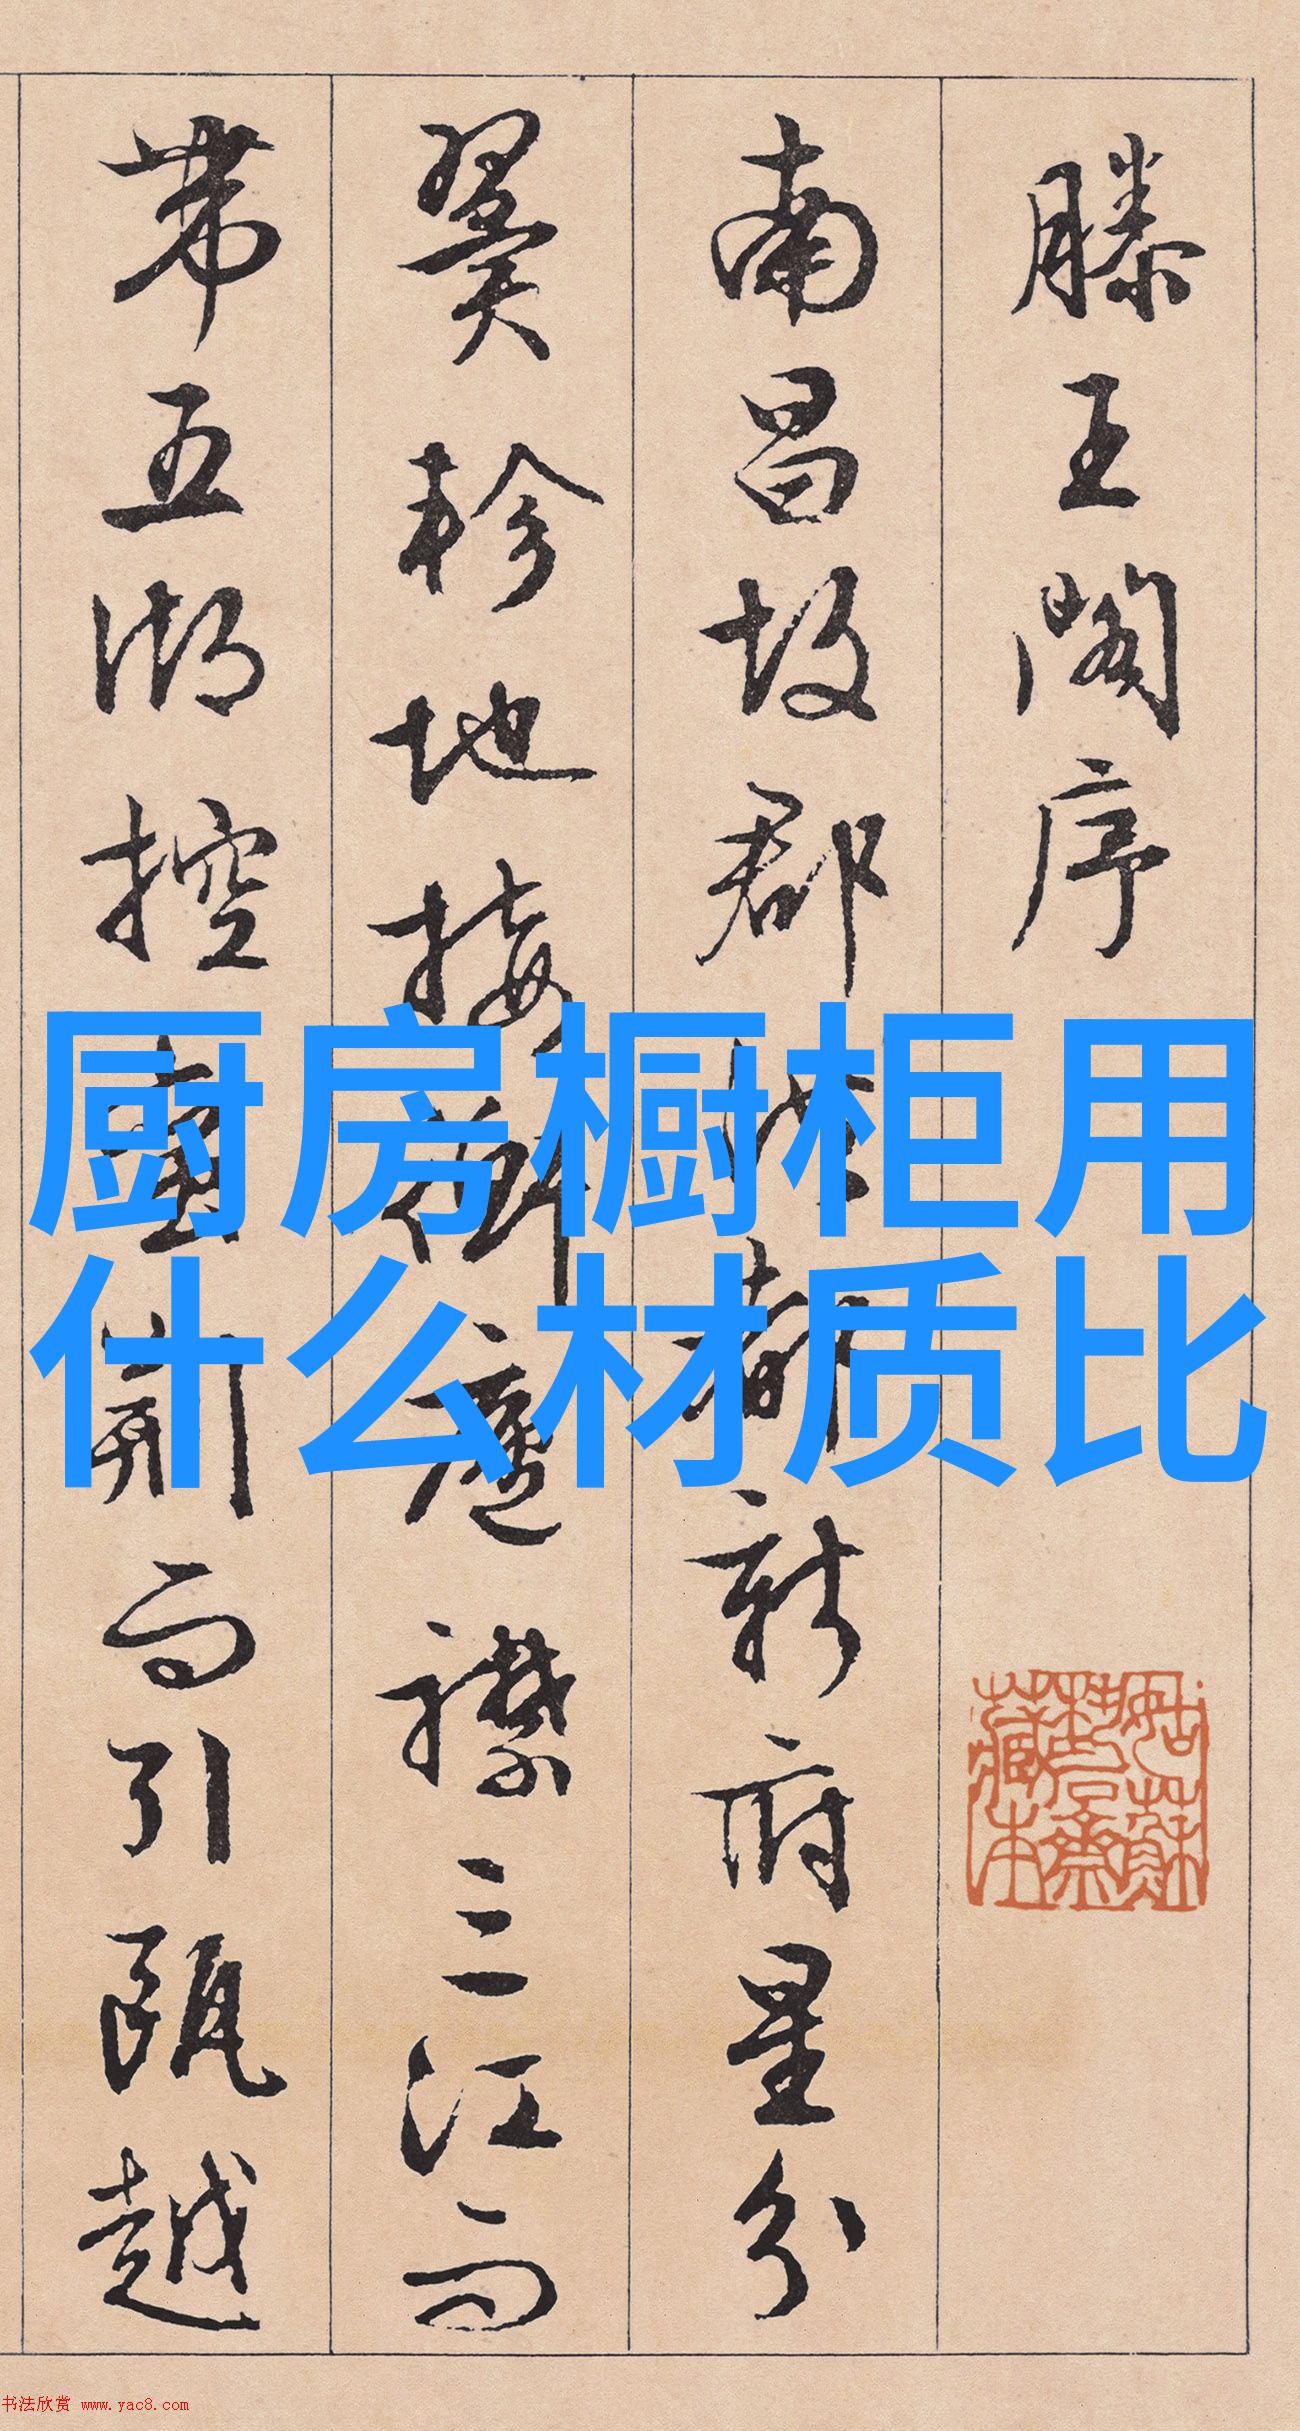 滕王阁序
南昌故郡洪都新府星分
翼轸地接衡庐襟三江而
带五湖控蛮荆而引瓯越
厨房橱柜用
什么材质比
书法欣赏 www.yac8.com